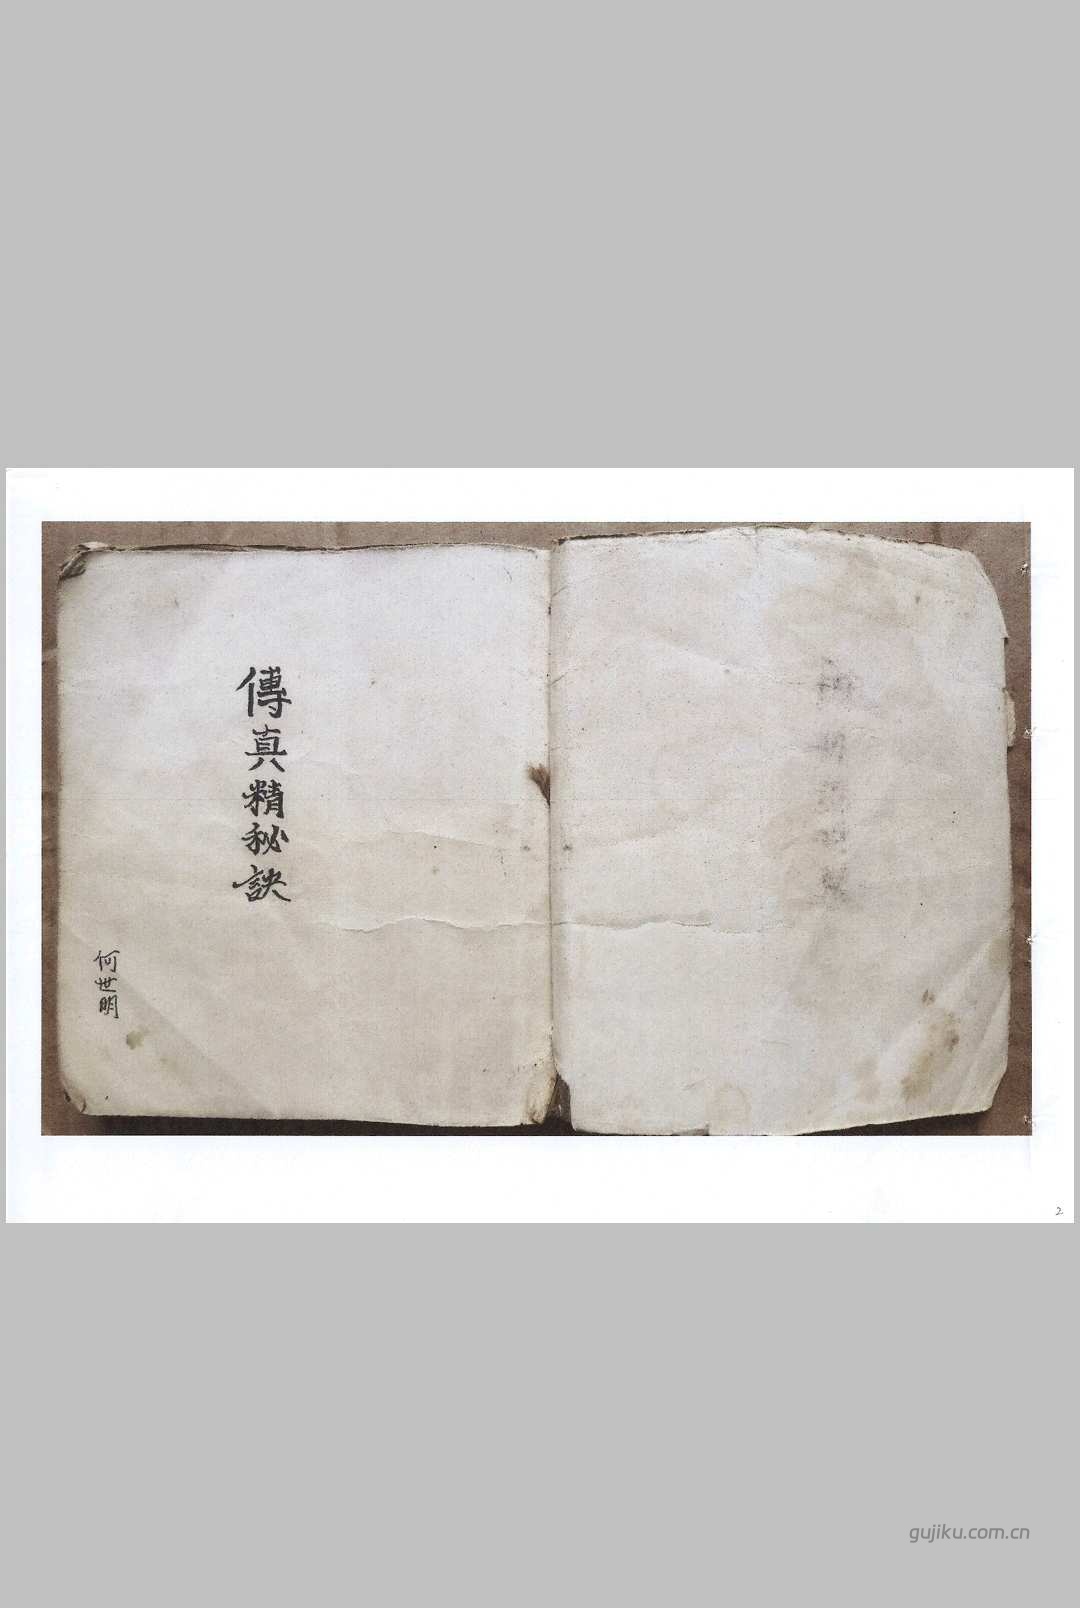 傳真精秘訣
何世明
2
gujiku.com.cn